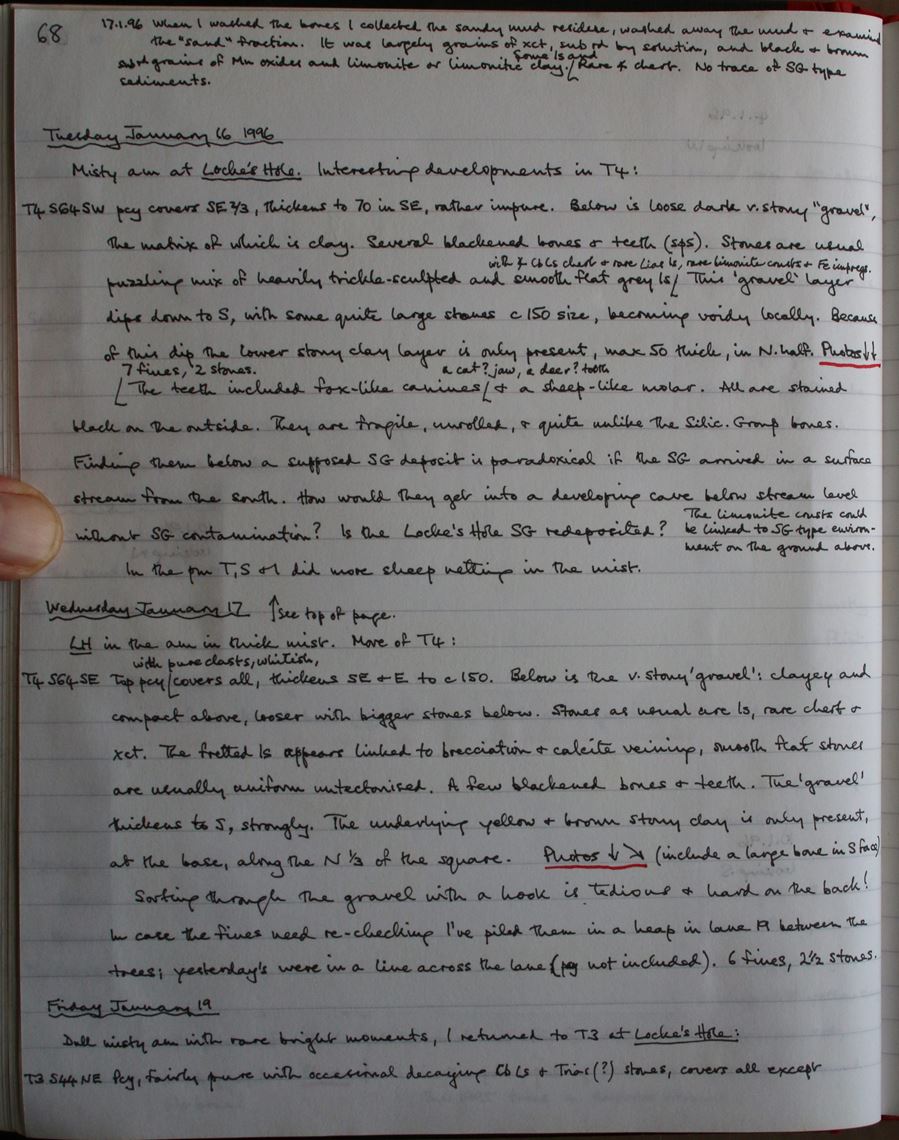 68
17.1.96 When I washed the bones I collected the sandy mud residue, washed away the mud & examined
the "sand" fraction. It was largely grains of xct, sub rd by solution, and black & brown
sub rd grains of Mn oxides and limonite or limonitic clay. [Rare & chert. No trace of SG type
some ls and
sediments.
Tuesday January 16 1996
Misty am at Locke's Hole. Interesting developments in T4:
T4 S64 SW pcy covers SE 2/3, thickens to 70 in SE, rather impure. Below is loose dark v. stony "gravel",
the matrix of which is clay. Several blackened bones & teeth (sps). Stones are usual
with & Cb Ls chert & rare Lias ls, rare limonite crusts & Fe impregs.
puzzling mix of heavily trickle-sculpted and smooth flat grey ls/ This 'gravel' layer
dips down to S, with some quite large stones c 150 size, becoming voidy locally. Because
of this dip the lower stony clay layer is only present, max 50 thick, in N. half. Photos ↓↓
7 fines, 2 stones.
a cat? jaw, a deer? tooth
[The teeth included fox-like canines [& a sheep-like molar. All are stained
black on the outside. They are fragile, unrolled, & quite unlike the Silic. Group bones.
Finding them below a supposed SG deposit is paradoxical if the SG arrived in a surface
stream from the south. How would they get into a developing cave below stream level
without SG contamination? Is the Locke's Hole SG redeposited?
The limonite crusts could
be linked to SG-type environ-
ment on the ground above.
In the pm T, S & I did more sheep netting in the mist.
Wednesday January 17 ↑ See top of page.
LH in the am in thick mist. More of T4:
with pure clasts, whitish,
T4 S64-SE Top pcy [covers all, thickens SE & E to c 150. Below is the v. stony 'gravel': clayey and
compact above, looser with bigger stones below. Stones as usual are ls, rare chert &
xct. The fretted ls appears linked to brecciation & calcite veining, smooth flat stones
are usually uniform untectonised. A few blackened bones & teeth. The 'gravel'
thickens to S, strongly. The underlying yellow & brown stony clay is only present,
at the base, along the N 1/3 of the square. Photos ↓ ↘ (include a large bone in S face)
Sorting through the gravel with a hook is tedious & hard on the back!
In case the fines need re-checking I've piled them in a heap in lane 19 between the
trees; yesterday's were in a line across the lane (pcy not included). 6 fines, 2½ stones.
Friday January 19
Dull misty am with rare bright moments, I returned to T3 at Locke's Hole:
T3 S44 NE Pcy, fairly pure with occasional decaying Cb Ls & Trias (?) stones, covers all except